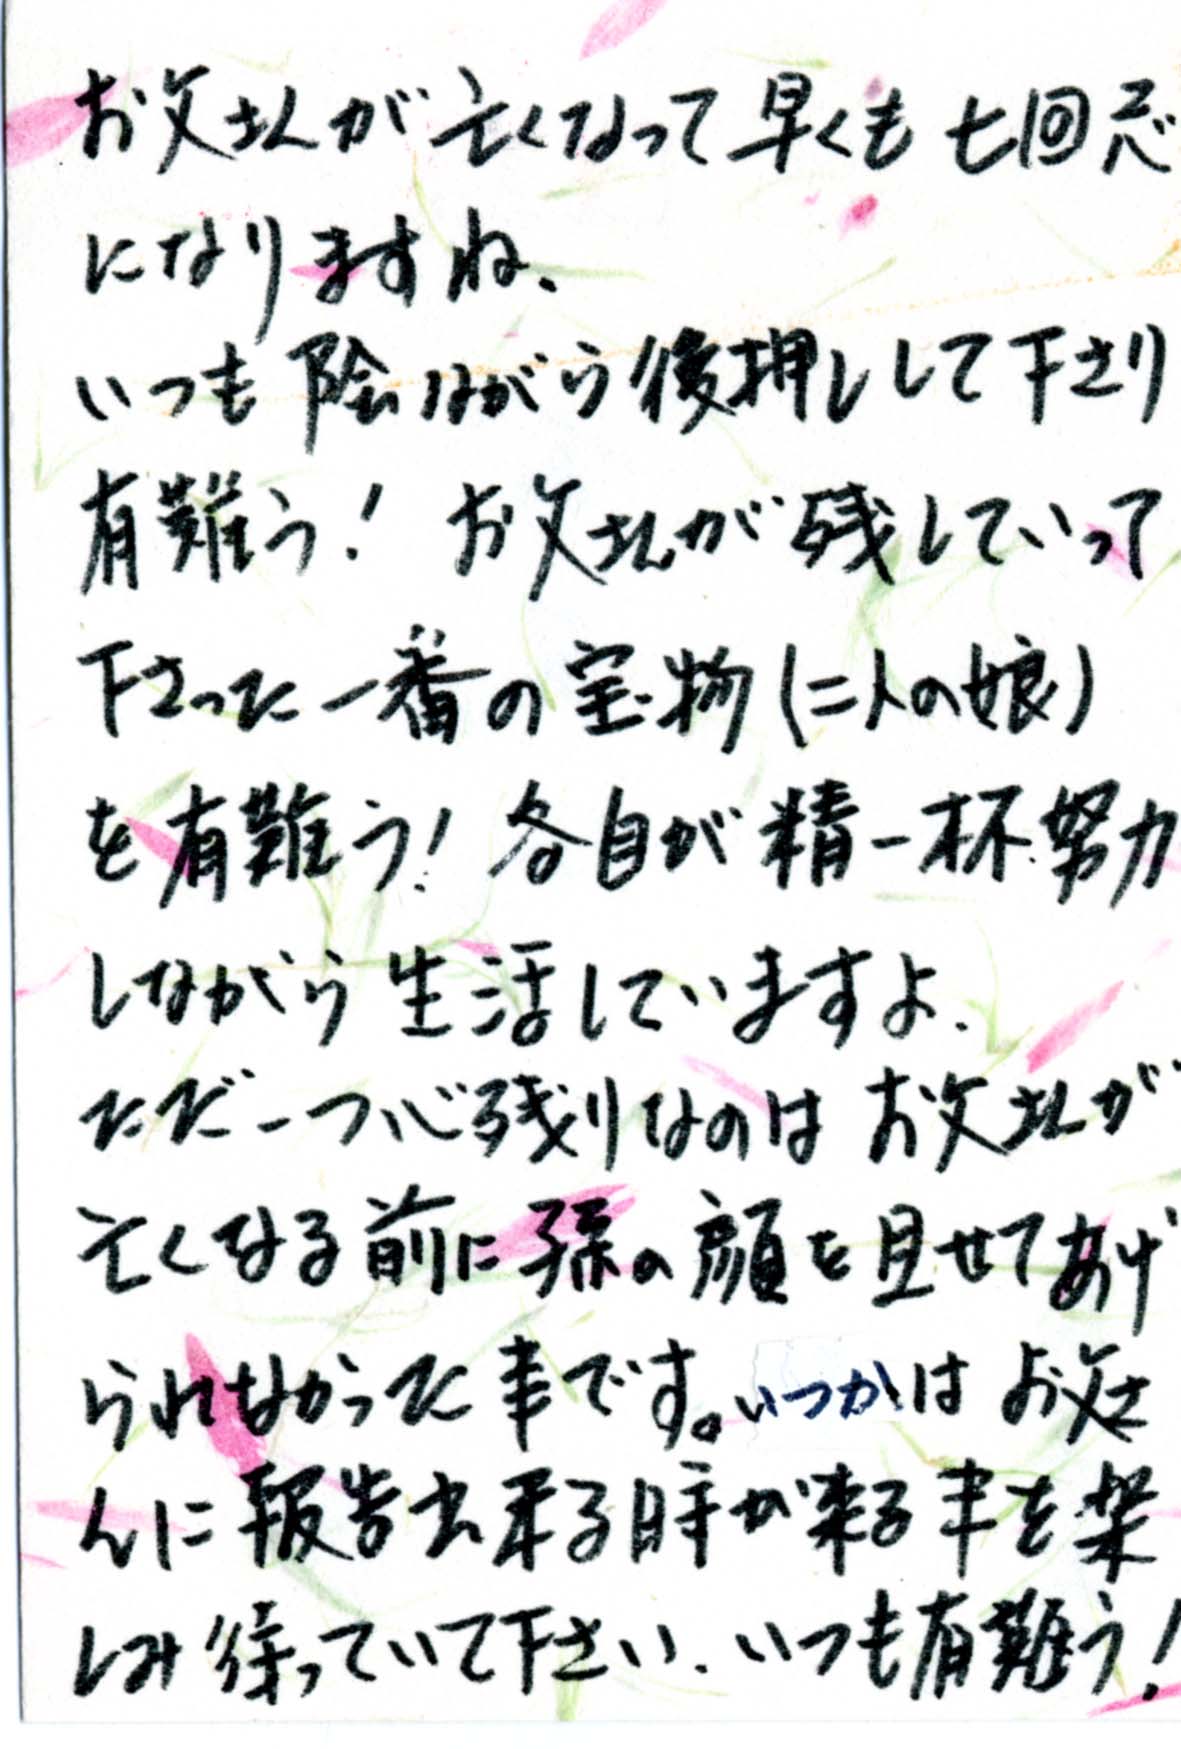 お父さんが亡くなって早くも七回忌
になりますね、
いつも陰ながら後押しして下さり
有難う！ お父さんが残していって
下さった一番の宝物(二人の娘)
を有難う！各自が精一杯努力
しながら生活していますよ、
ただ一つ心残りなのはお父さんが
亡くなる前に孫の顔を見せてあげ
られなかった事です。いつかはお父さ
んに報告出来る時が来る事を楽
しみ待っていて下さい、いつも有難う！